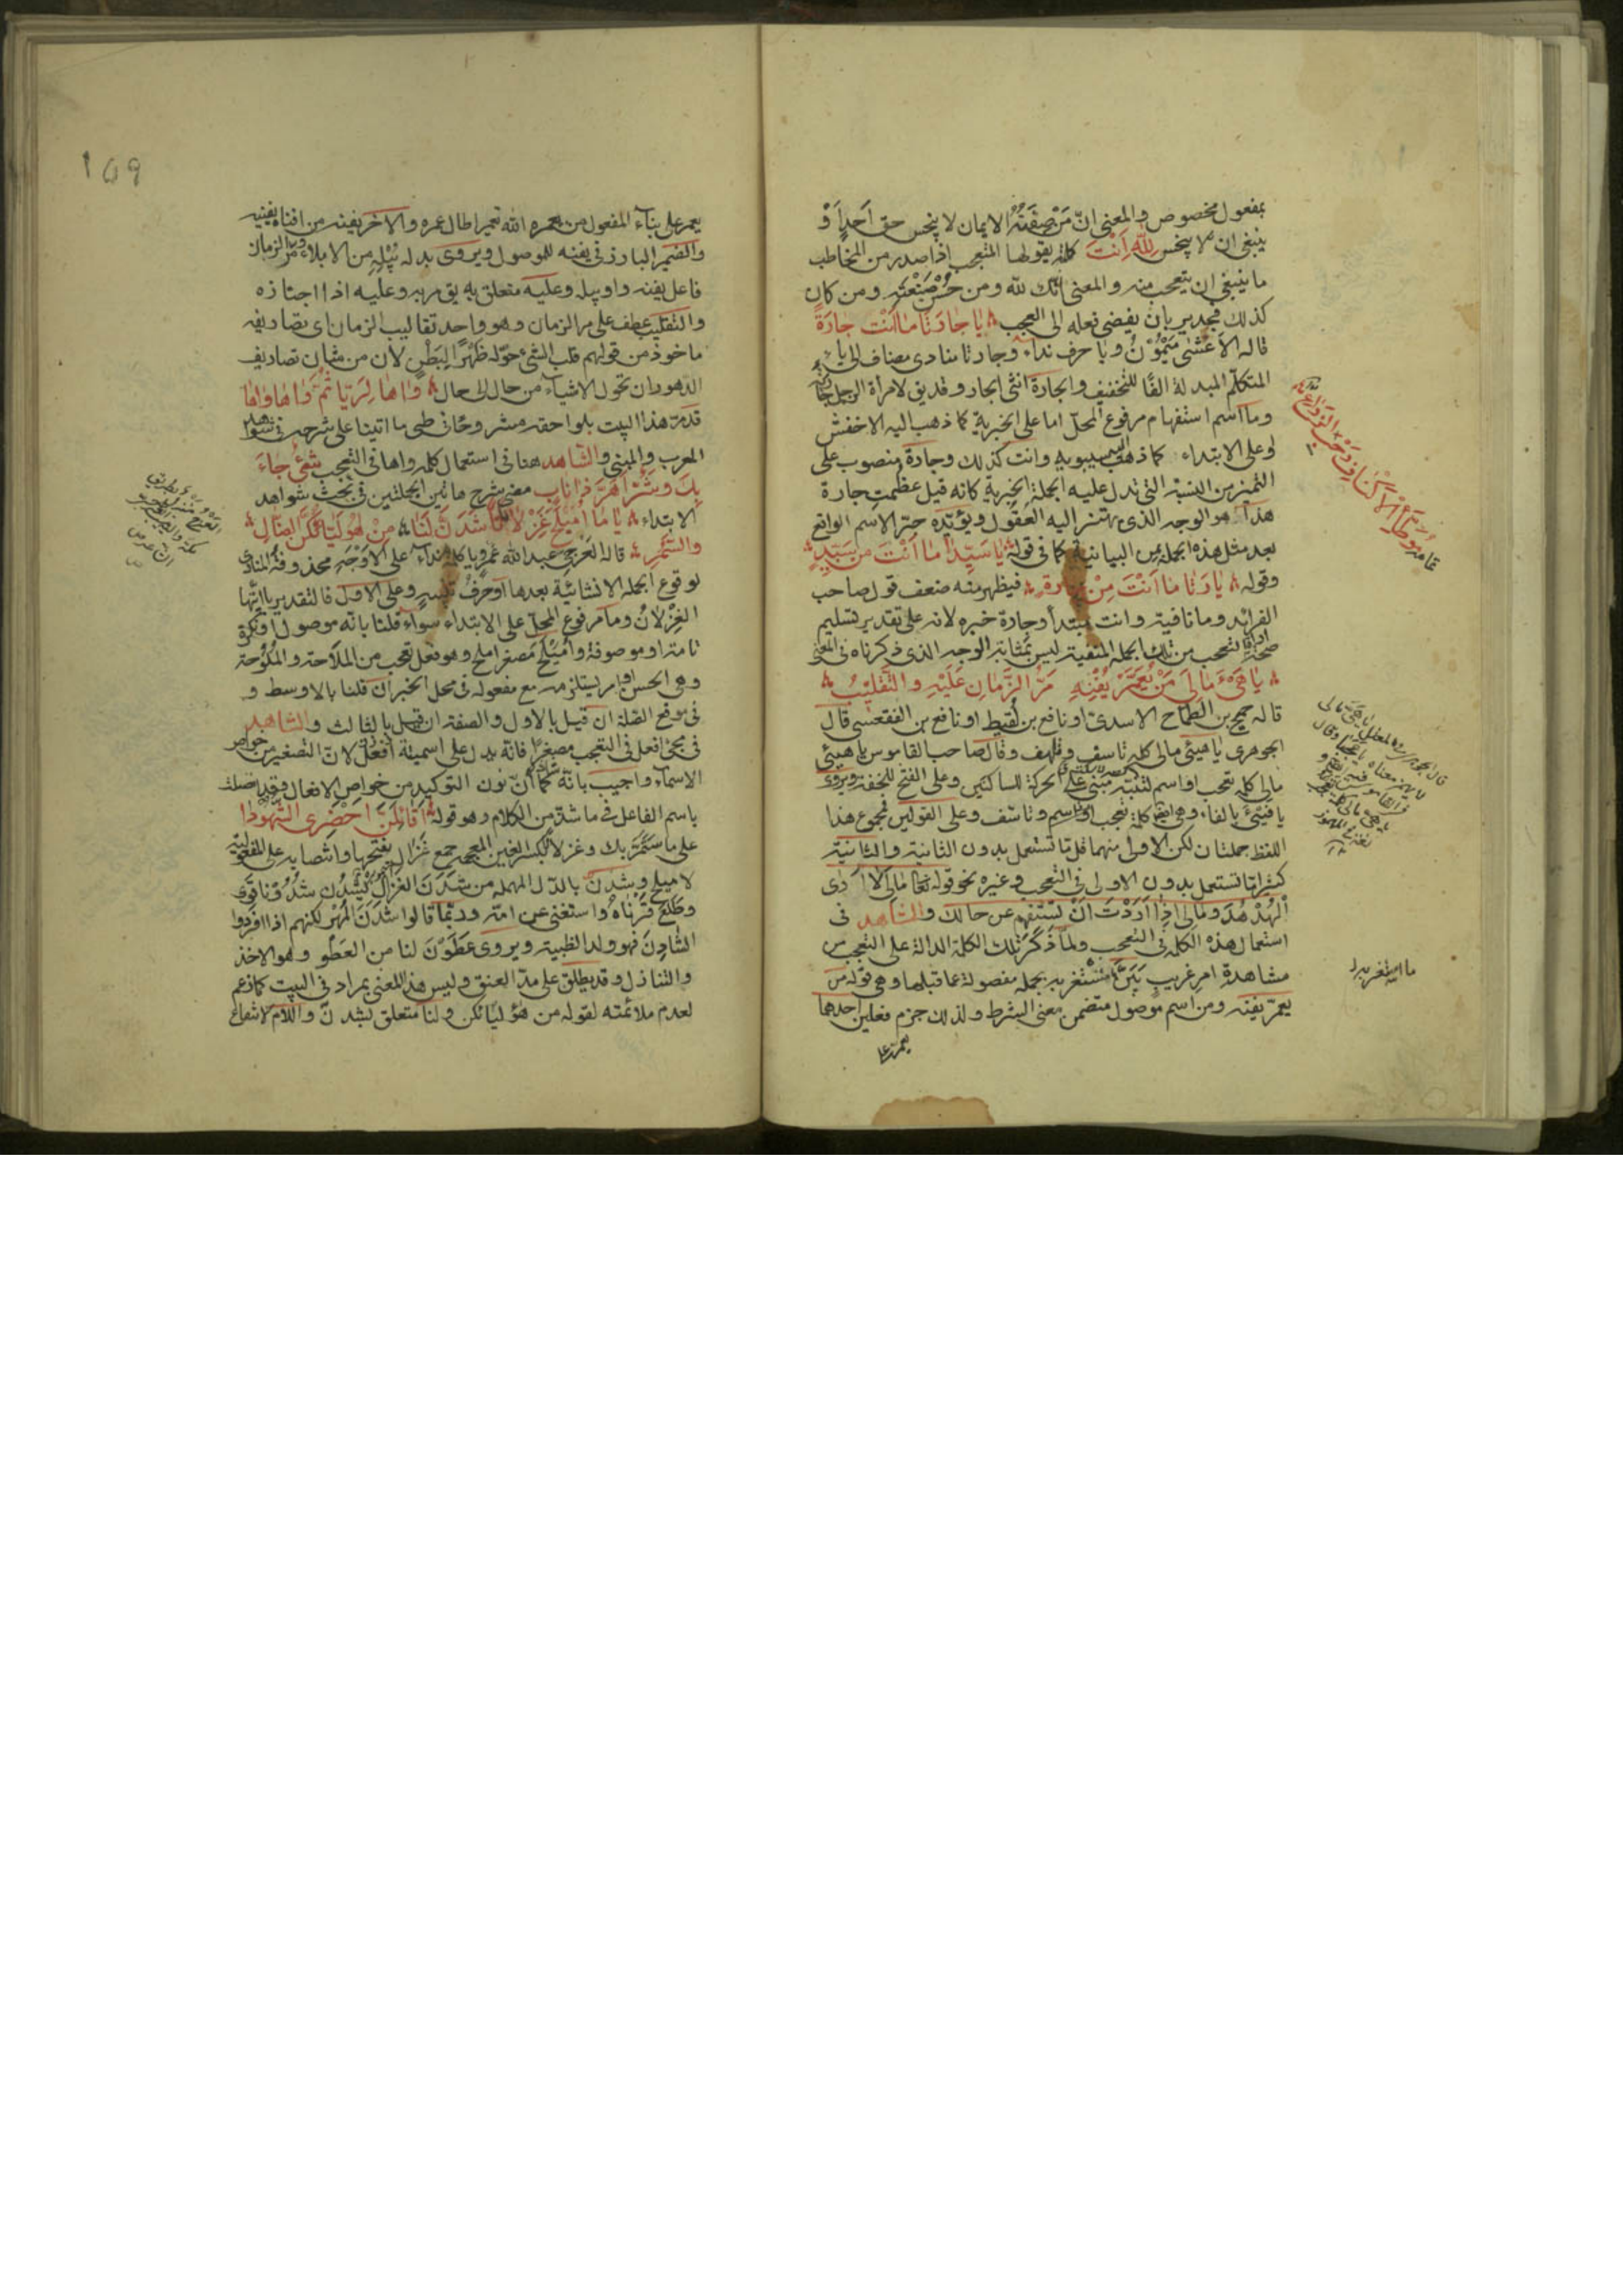 بمفعول مخصوص والمعنى ان من صفته الايمان لا يبخس حق احد او
ينبغى ان لا يبخس لله انت كلمة يقولها المتعجب اذا صدر من المخاطب
ما ينبغى ان يتعجب منه والمعنى انك لله ومن حسن صنعته ومن كان
كذلك فجدير بان يفضى فعله الى العجب يا جارتا ما انت جارة
قاله الاعشى ميمون ويا حرف نداء وجارتا منادى مضاف الى ياء
المتكلم المبدلة الفا للتخفيف والجارة انثى الجار وقد يق لامرأة الرجل جارته
وما اسم استفهام مرفوع المحل اما على الخبرية كما ذهب اليه الاخفش
او على الابتداء كما ذهب اليه سيبويه وانت كذلك وجارة منصوب على
التميز من النسبة التى تدل عليه الجملة الخبرية كانه قيل عظمت جارة
هذا هو الوجه الذى يهتز اليه العقول ويؤيده جر الاسم الواقع
بعد مثل هذه الجملة بمن البيانية كما فى قوله يا سيدا ما انت من سيد
وقوله يا جارتا ما انت من جارة فيظهر منه ضعف قول صاحب
الفرائد وما نافية وانت مبتدأ وجارة خبره لانه على تقدير تسليم
صحة افادة التعجب من تلك الجملة المنفية ليس بمثابة الوجه الذى ذكرناه فى المعنى
يا هىء مالى من يعمر يفنه مر الزمان عليه والتقليب
قاله جميح بن الطماح الاسدى او نافع بن لقيط او نافع بن الفقعسى قال
الجوهرى يا هيئ مالى كلمة تاسف وتلهف وقال صاحب القاموس يا هيئ
مالى كلمة تعجب او اسم لتنبه مبنى على الحركة للساكنين وعلى الفتح للخفة ويروى
يا فيئ بالفاء وهى ايضا كلمة تعجب او اسم وتاسف وعلى القولين فمجموع هذا
اللفظ جملتان لكن الاولى منهما قلما تستعمل بدون الثانية والثانية
كثيرا ما تستعمل بدون الاولى فى التعجب وغيره نحو قوله تعالى مالى لا ارى
الهدهد ومالى اذا اردت ان تستفهم عن حالك والشاهد فى
استعمال هذه الكلمة فى التعجب ولما ذكر تلك الكلمة الدالة على التعجب من
مشاهدة امر غريب بين ما استغربه بجملة مفصولة عما قبلها وهى قوله من
يعمر يفنه ومن اسم موصول متضمن معنى الشرط ولذلك جزم فعلين احدهما
يعمر على
قال الجوهرى
ما استغربه
169
يعمر على بناء المفعول من عمره الله تعميرا طال عمره والاخر يفنه من افناه يفنيه
والضمير البارز فى يفنه للموصول ويروى بدله يبله من الابلاء ومر الزمان
فاعل يفنه او يبله وعليه متعلق به يق مر به وعليه اذا اجتازه
والتقليب عطف على مر الزمان وهو واحد تقاليب الزمان اى تصاريفه
ماخوذ من قولهم قلب الشىء حوله ظهرا لبطن لان من شان تصاريف
الدهور ان تحول الاشياء من حال الى حال واها لريا ثم واها واها
قد مر هذا البيت بلواحقه مشروحا فى طى ما اتينا على شرحه فى شواهد
المعرب والمبنى والشاهد هنا فى استعمال كلمة واها فى التعجب شىء جاء
بك وشر اهر ذا ناب مضى شرح هاتين الجملتين فى بحث شواهد
الابتداء يا ما اميلح غزلانا شدن لنا من هوليائكن الضال
والسمر قاله العرجى عبد الله عمرو يا كلمة نداء على الاوجه محذوفة المنادى
لوقوع الجملة الانشائية بعدها او حرف تنبيه وعلى الاول فالتقدير يا ايتها
الغزلان وما مرفوع المحل على الابتداء سواء قلنا بانه موصول او نكرة
تامة او موصوفة واميلح مصغر املح وهو فعل تعجب من الملاحة والملوحة
وهى الحسن
فى موقع الصلة ان قيل بالاول والصفة ان قيل بالثالث والشاهد
فى مجئ افعل فى التعجب مصغرا فانه يدل على اسمية افعل لان التصغير من خواص
الاسماء واجيب بانه شاذ كما ان نون التوكيد من خواص الافعال وقد اتصلت
باسم الفاعل فى ما شذ من الكلام وهو قوله اقائلن احضرى الشهودا
على ما سيمر بك وغزلانا بكسر الغين المعجمة جمع غزال بفتحها وانتصابه على المفعولية
لاميلح وشدن بالدال المهملة من شدن الغزال يشدن شدونا قوى
وطلع قرناه واستغنى عن امه وربما قالوا شدن المهر لكنهم اذا افردوا
الشادن فهو ولد الظبية ويروى عطون لنا من العطو وهو الاخذ
والتناول وقد يطلق على مد العنق وليس هذا المعنى بمراد فى البيت كما زعم
لعدم ملائمته لقوله من هؤليائكن ولنا متعلق بشدن واللام لانتفاع